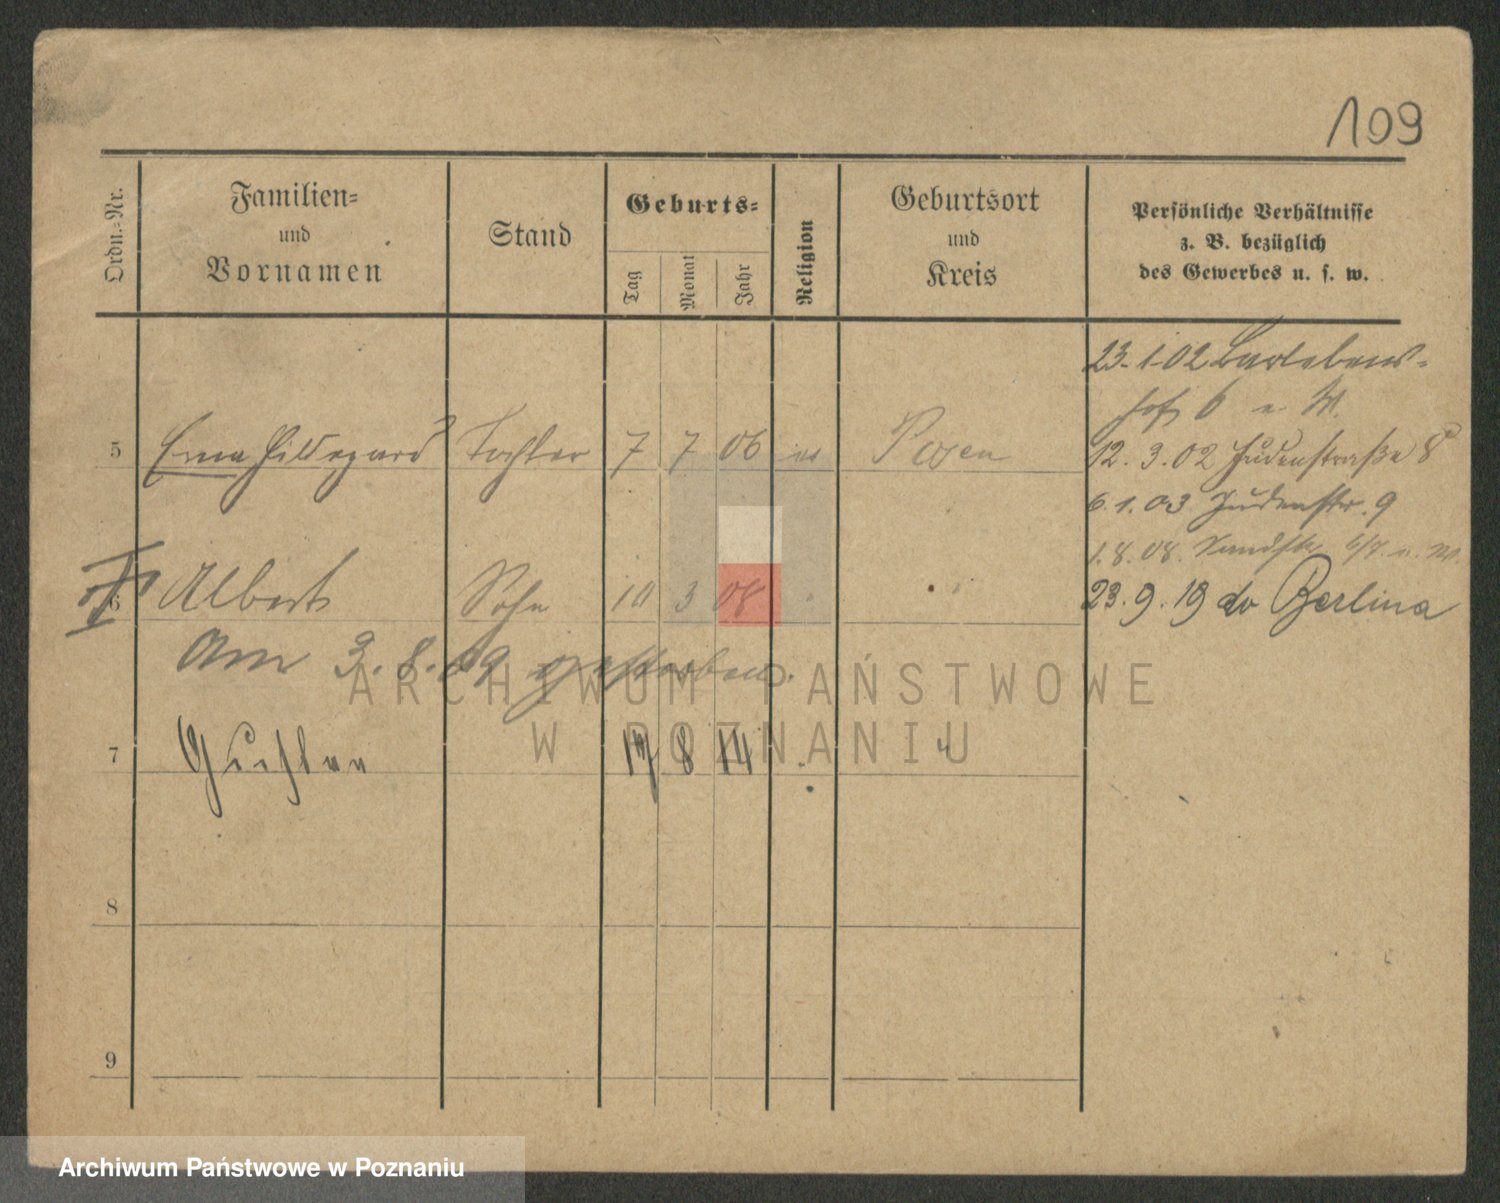 109
Ordn.-Nr.
Familien-
und
Vornamen
Stand
Geburts-
Tag
Monat
Jahr
Religion
Geburtsort
und
Kreis
Persönliche Verhältnisse
z. B. bezüglich
des Gewerbes u. s. w.
23.1.02 Bartelsens-
hof 6 u. W.
5 Erna Hildegard Tochter 7 7 06 Posen
12.3.02 Judenstraße 8
6.1.03 Judenstr. 9
1.8.08.
6 Albert Sohn 10 3 08
23.9.19 do Berlina
Am 3.8.09 gestorben.
7 17 8 14
8
9
ARCHIWUM PAŃSTWOWE
W POZNANIU
Archiwum Państwowe w Poznaniu